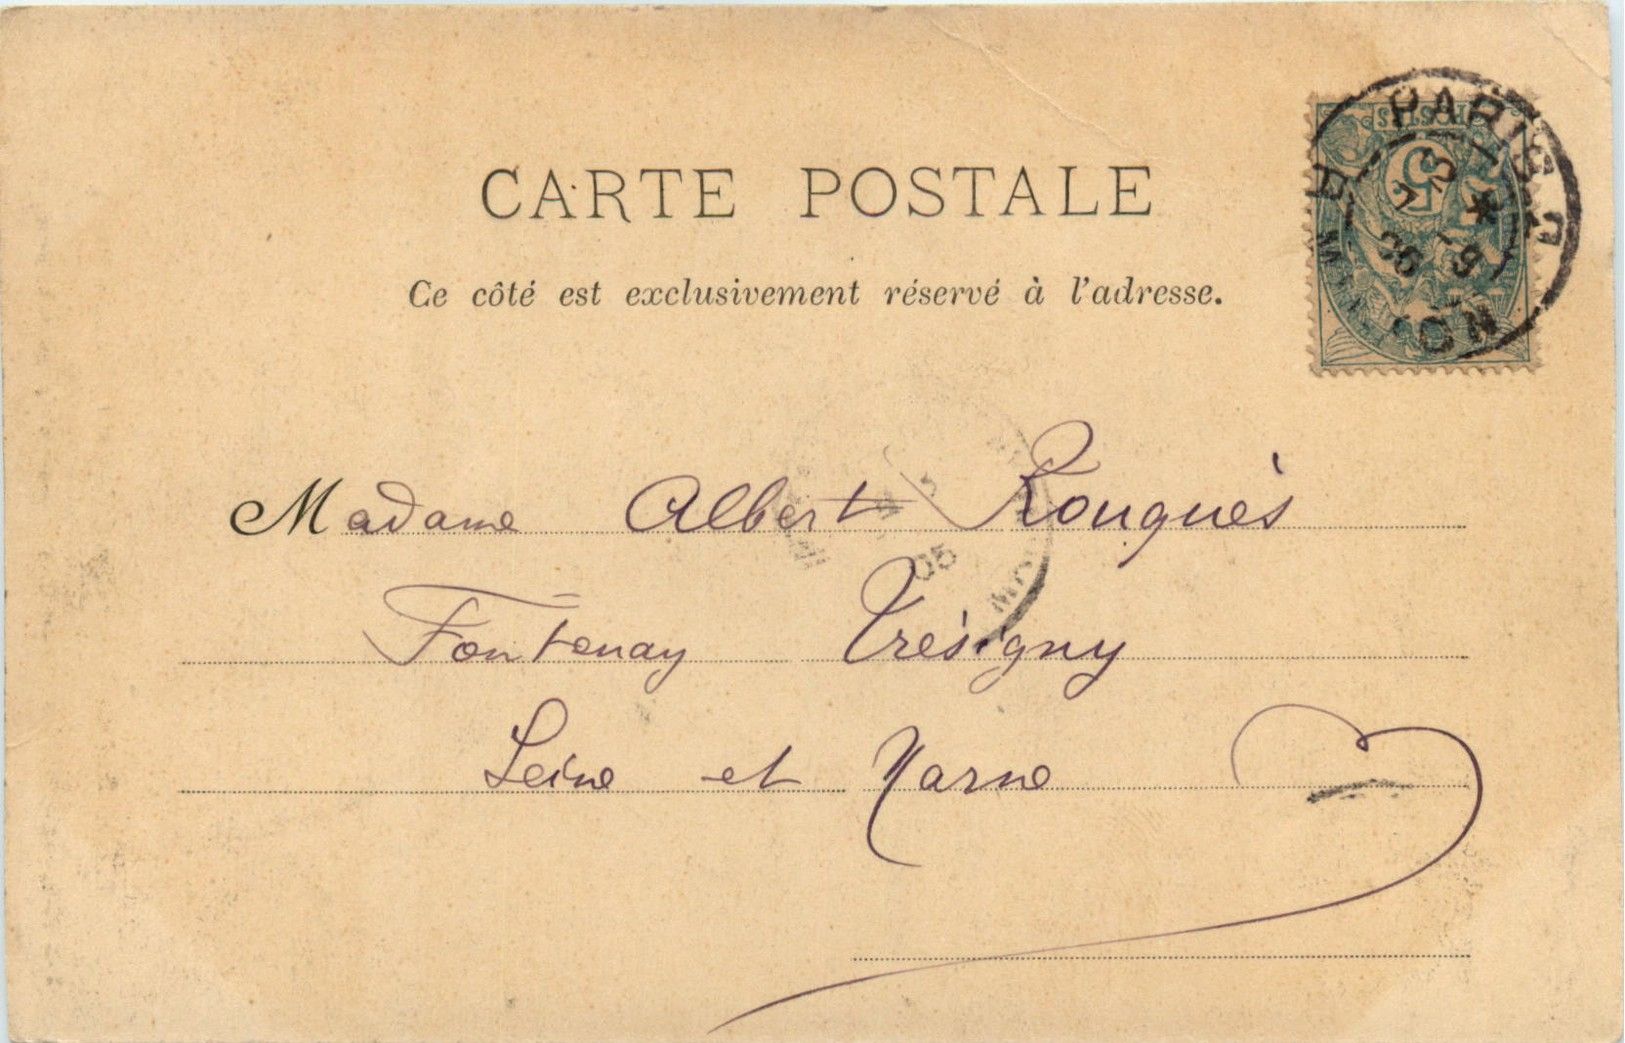 CARTE POSTALE
Ce côté est exclusivement réservé à l'adresse.
Madame Albert Rouquès
Fontenay Trésigny
Seine et Marne
PARIS
POSTES
5
05